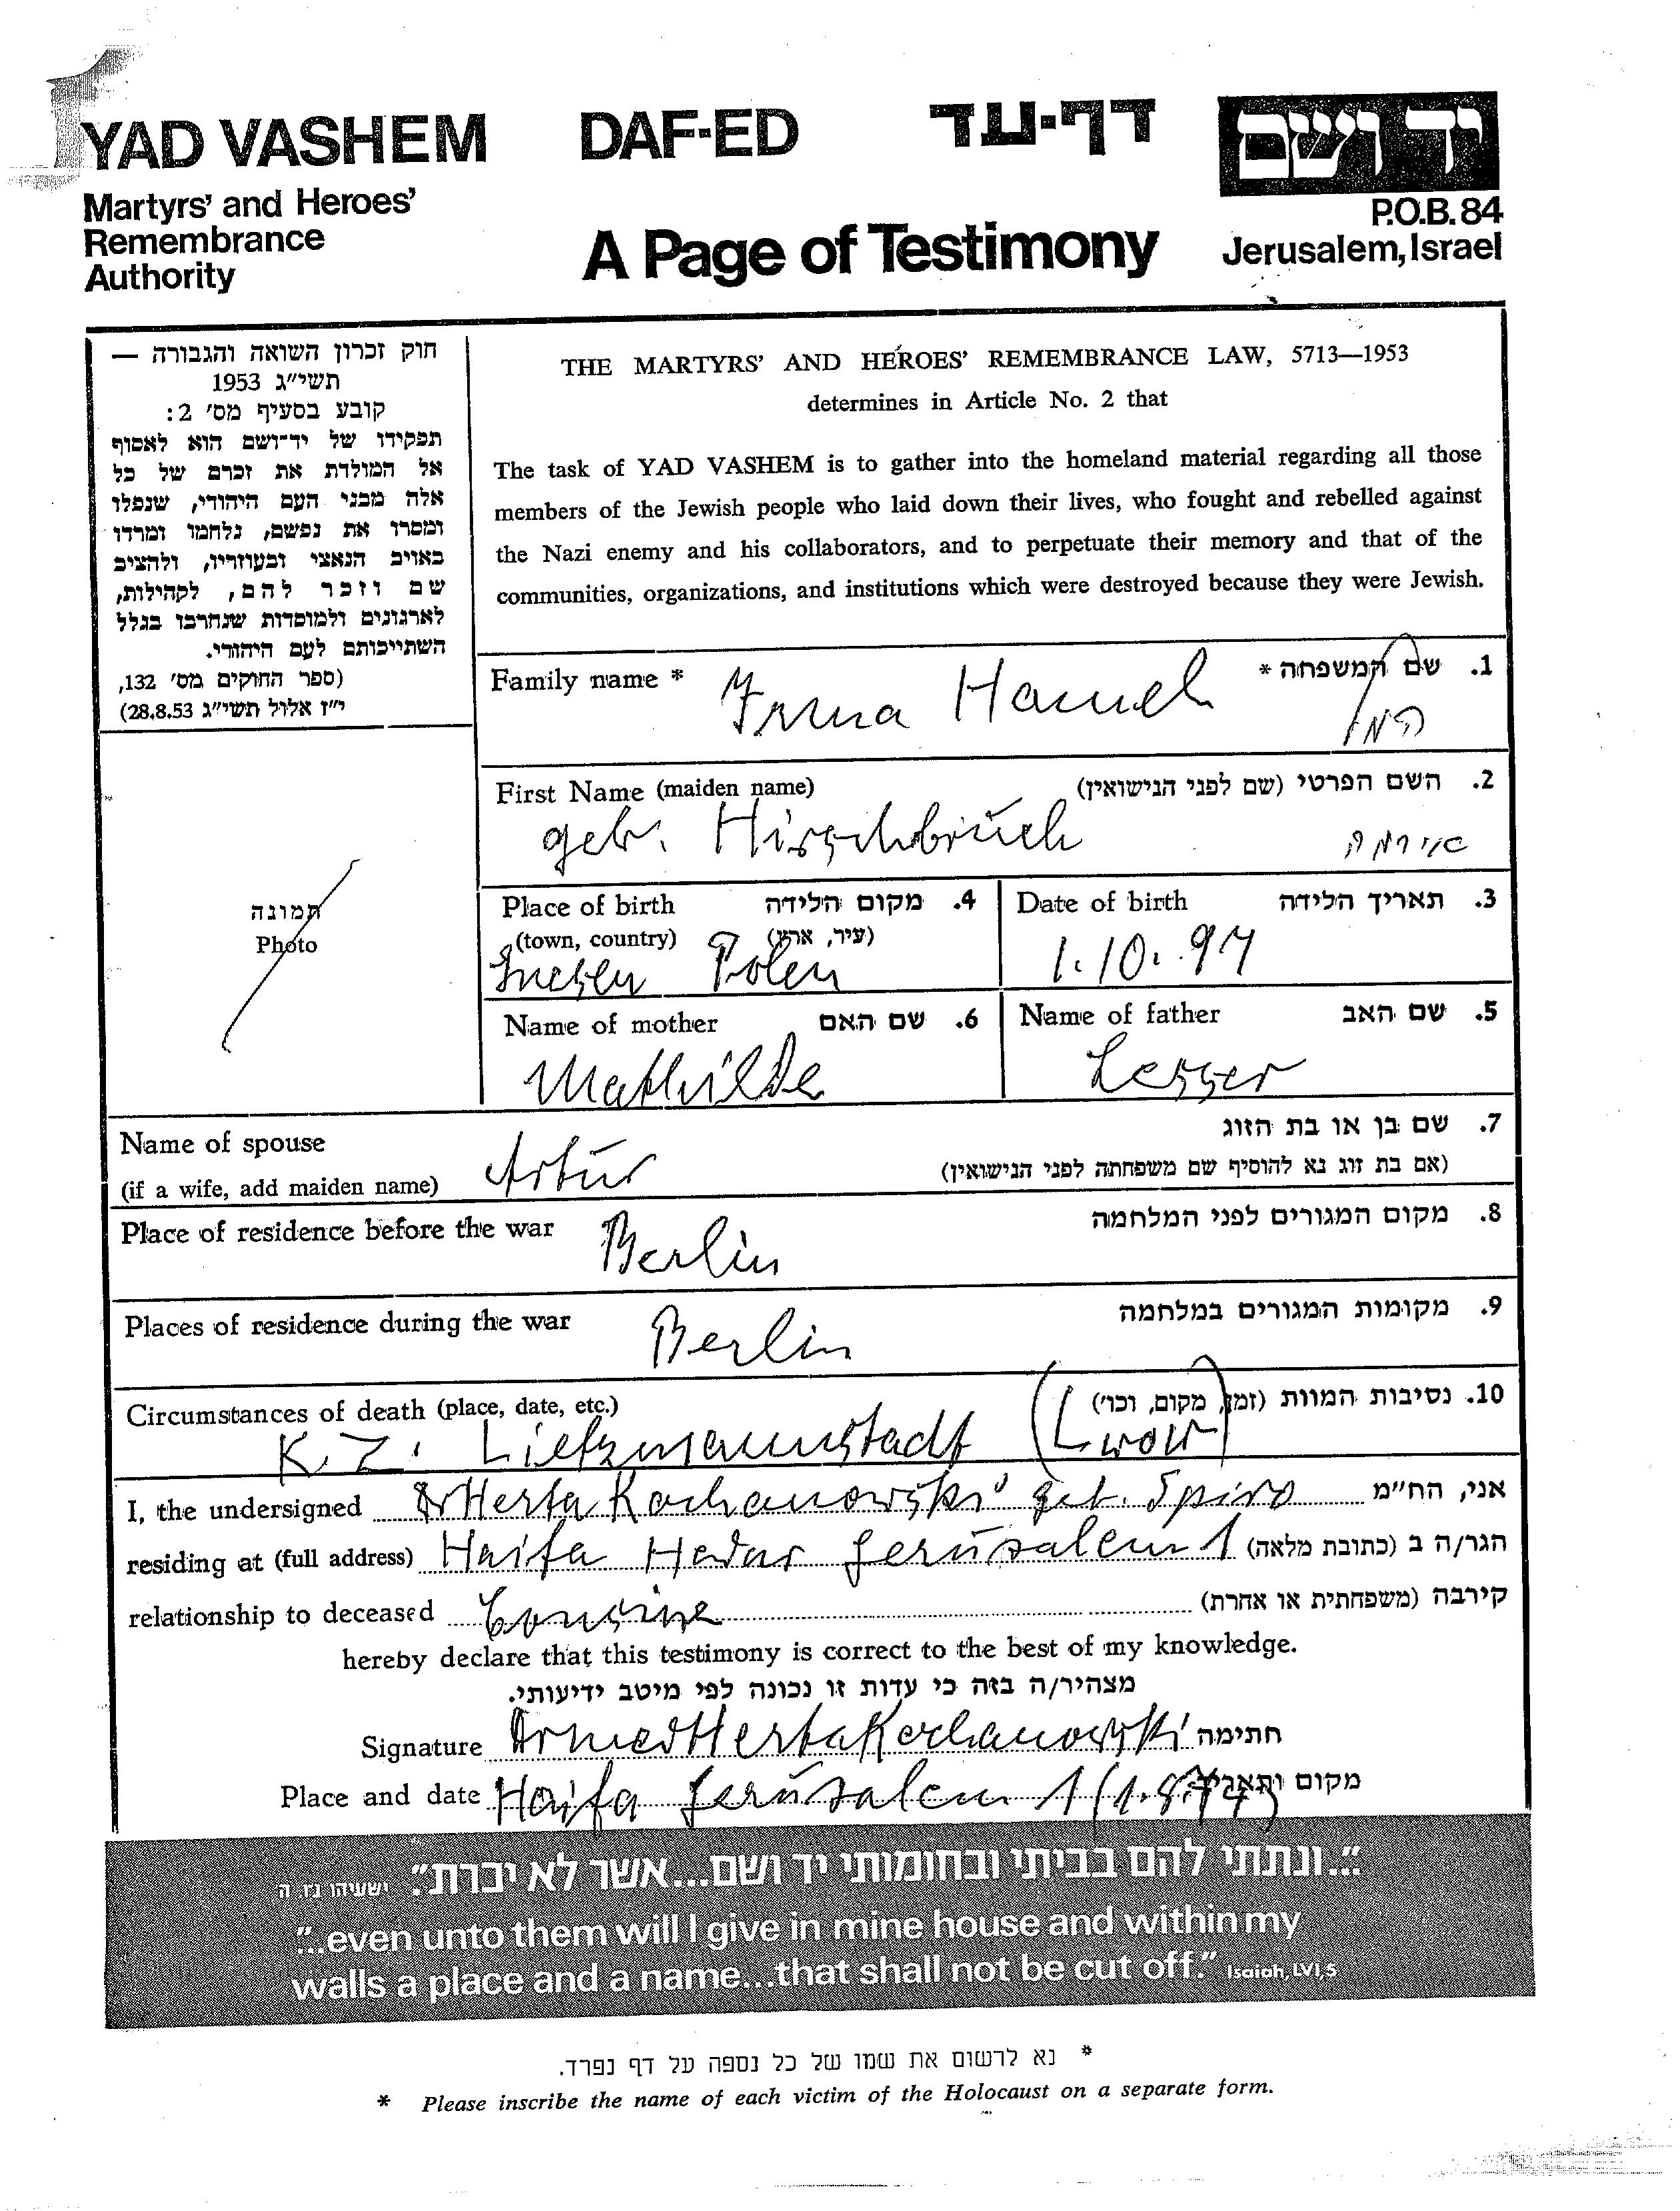 YAD VASHEM DAF-ED דף-עד יד ושם
Martyrs' and Heroes'
Remembrance
Authority
A Page of Testimony
P.O.B. 84
Jerusalem, Israel
חוק זכרון השואה והגבורה —
תשי״ג 1953
קובע בסעיף מס׳ 2:
תפקידו של יד־ושם הוא לאסוף
אל המולדת את זכרם של כל
אלה מבני העם היהודי, שנפלו
ומסרו את נפשם, נלחמו ומרדו
באויב הנאצי ובעוזריו, ולהציב
שם וזכר להם, לקהילות,
לארגונים ולמוסדות שנחרבו בגלל
השתייכותם לעם היהודי.
(ספר החוקים מס׳ 132,
י״ז אלול תשי״ג 28.8.53)
THE MARTYRS' AND HEROES' REMEMBRANCE LAW, 5713—1953
determines in Article No. 2 that
The task of YAD VASHEM is to gather into the homeland material regarding all those
members of the Jewish people who laid down their lives, who fought and rebelled against
the Nazi enemy and his collaborators, and to perpetuate their memory and that of the
communities, organizations, and institutions which were destroyed because they were Jewish.
Family name * Irma Hamel 1. שם המשפחה *
המל
First Name (maiden name) 2. השם הפרטי (שם לפני הנישואין)
geb. Hirschbrüch אירמה
תמונה
Photo
Place of birth 4. מקום הלידה
(town, country) (עיר, ארץ)
Gnesen Polen
Date of birth 3. תאריך הלידה
1.10.97
Name of mother 6. שם האם
Mathilde
Name of father 5. שם האב
Lesser
Name of spouse 7. שם בן או בת הזוג
(if a wife, add maiden name) Artur (אם בת זוג נא להוסיף שם משפחתה לפני הנישואין)
Place of residence before the war Berlin 8. מקום המגורים לפני המלחמה
Places of residence during the war Berlin 9. מקומות המגורים במלחמה
Circumstances of death (place, date, etc.) 10. נסיבות המוות (זמן, מקום, וכו׳)
K.Z. Litzmannstadt (Lwow)
I, the undersigned Dr Herta Kochanowski geb. Spiro אני, הח״מ
residing at (full address) Haifa Hadar Jerusalem 1 הגר/ה ב (כתובת מלאה)
relationship to deceased Cousine קירבה (משפחתית או אחרת)
hereby declare that this testimony is correct to the best of my knowledge.
מצהיר/ה בזה כי עדות זו נכונה לפי מיטב ידיעותי.
Signature Dr med Herta Kochanowski חתימה
Place and date Haifa Jerusalem 1 מקום ותאריך
״...ונתתי להם בביתי ובחומותי יד ושם...אשר לא יכרת״. ישעיהו נו ה
"...even unto them will I give in mine house and within my
walls a place and a name...that shall not be cut off." Isaiah, LVI,5
* נא לרשום את שמו של כל נספה על דף נפרד.
* Please inscribe the name of each victim of the Holocaust on a separate form.